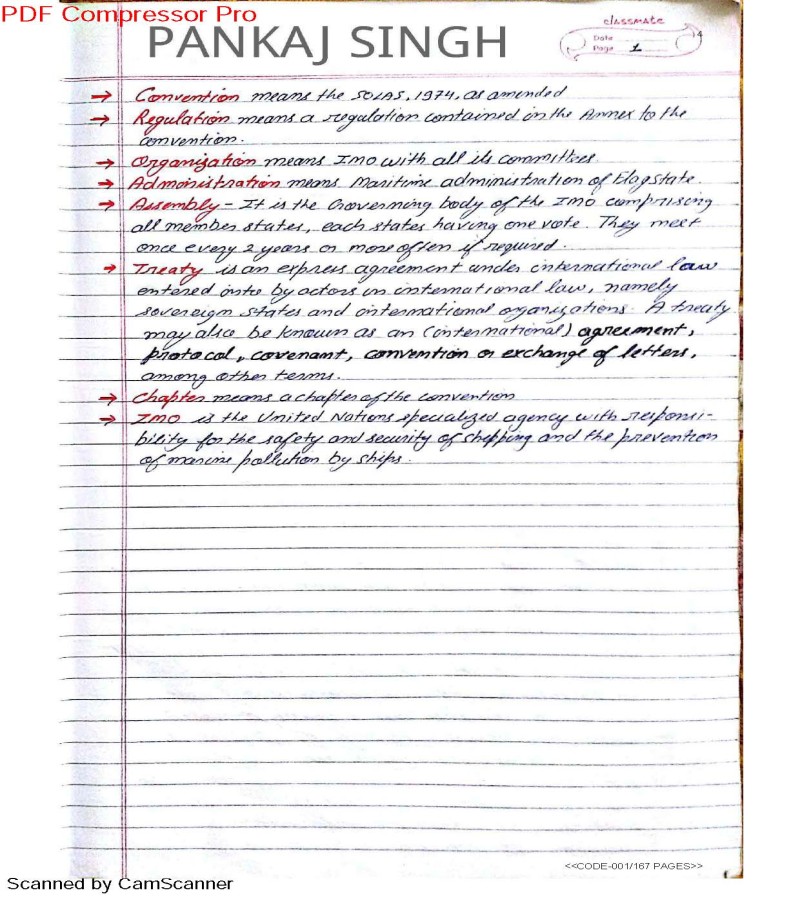 PDF Compressor Pro
PANKAJ SINGH
classmate
Date
Page 1
→ Convention means the SOLAS, 1974, as amended
→ Regulation means a regulation contained in the Annex to the
convention.
→ Organization means IMO with all its committees
→ Administration means Maritime administration of Flag state.
→ Assembly - It is the Governing body of the IMO comprising
all member states, each states having one vote. They meet
once every 2 years or more often if required.
→ Treaty is an express agreement under international law
entered into by actors in international law, namely
sovereign states and international organizations. A treaty
may also be known as an (international) agreement,
protocol, covenant, convention or exchange of letters,
among other terms.
→ Chapter means a chapter of the convention
→ IMO is the United Nations specialized agency with responsi-
bility for the safety and security of shipping and the prevention
of marine pollution by ships.
<<CODE-001/167 PAGES>>
Scanned by CamScanner